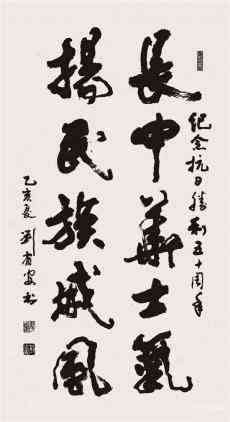 紀念抗日勝利五十周年
長中華士氣
揚民族威風
乙亥夏劉書安书